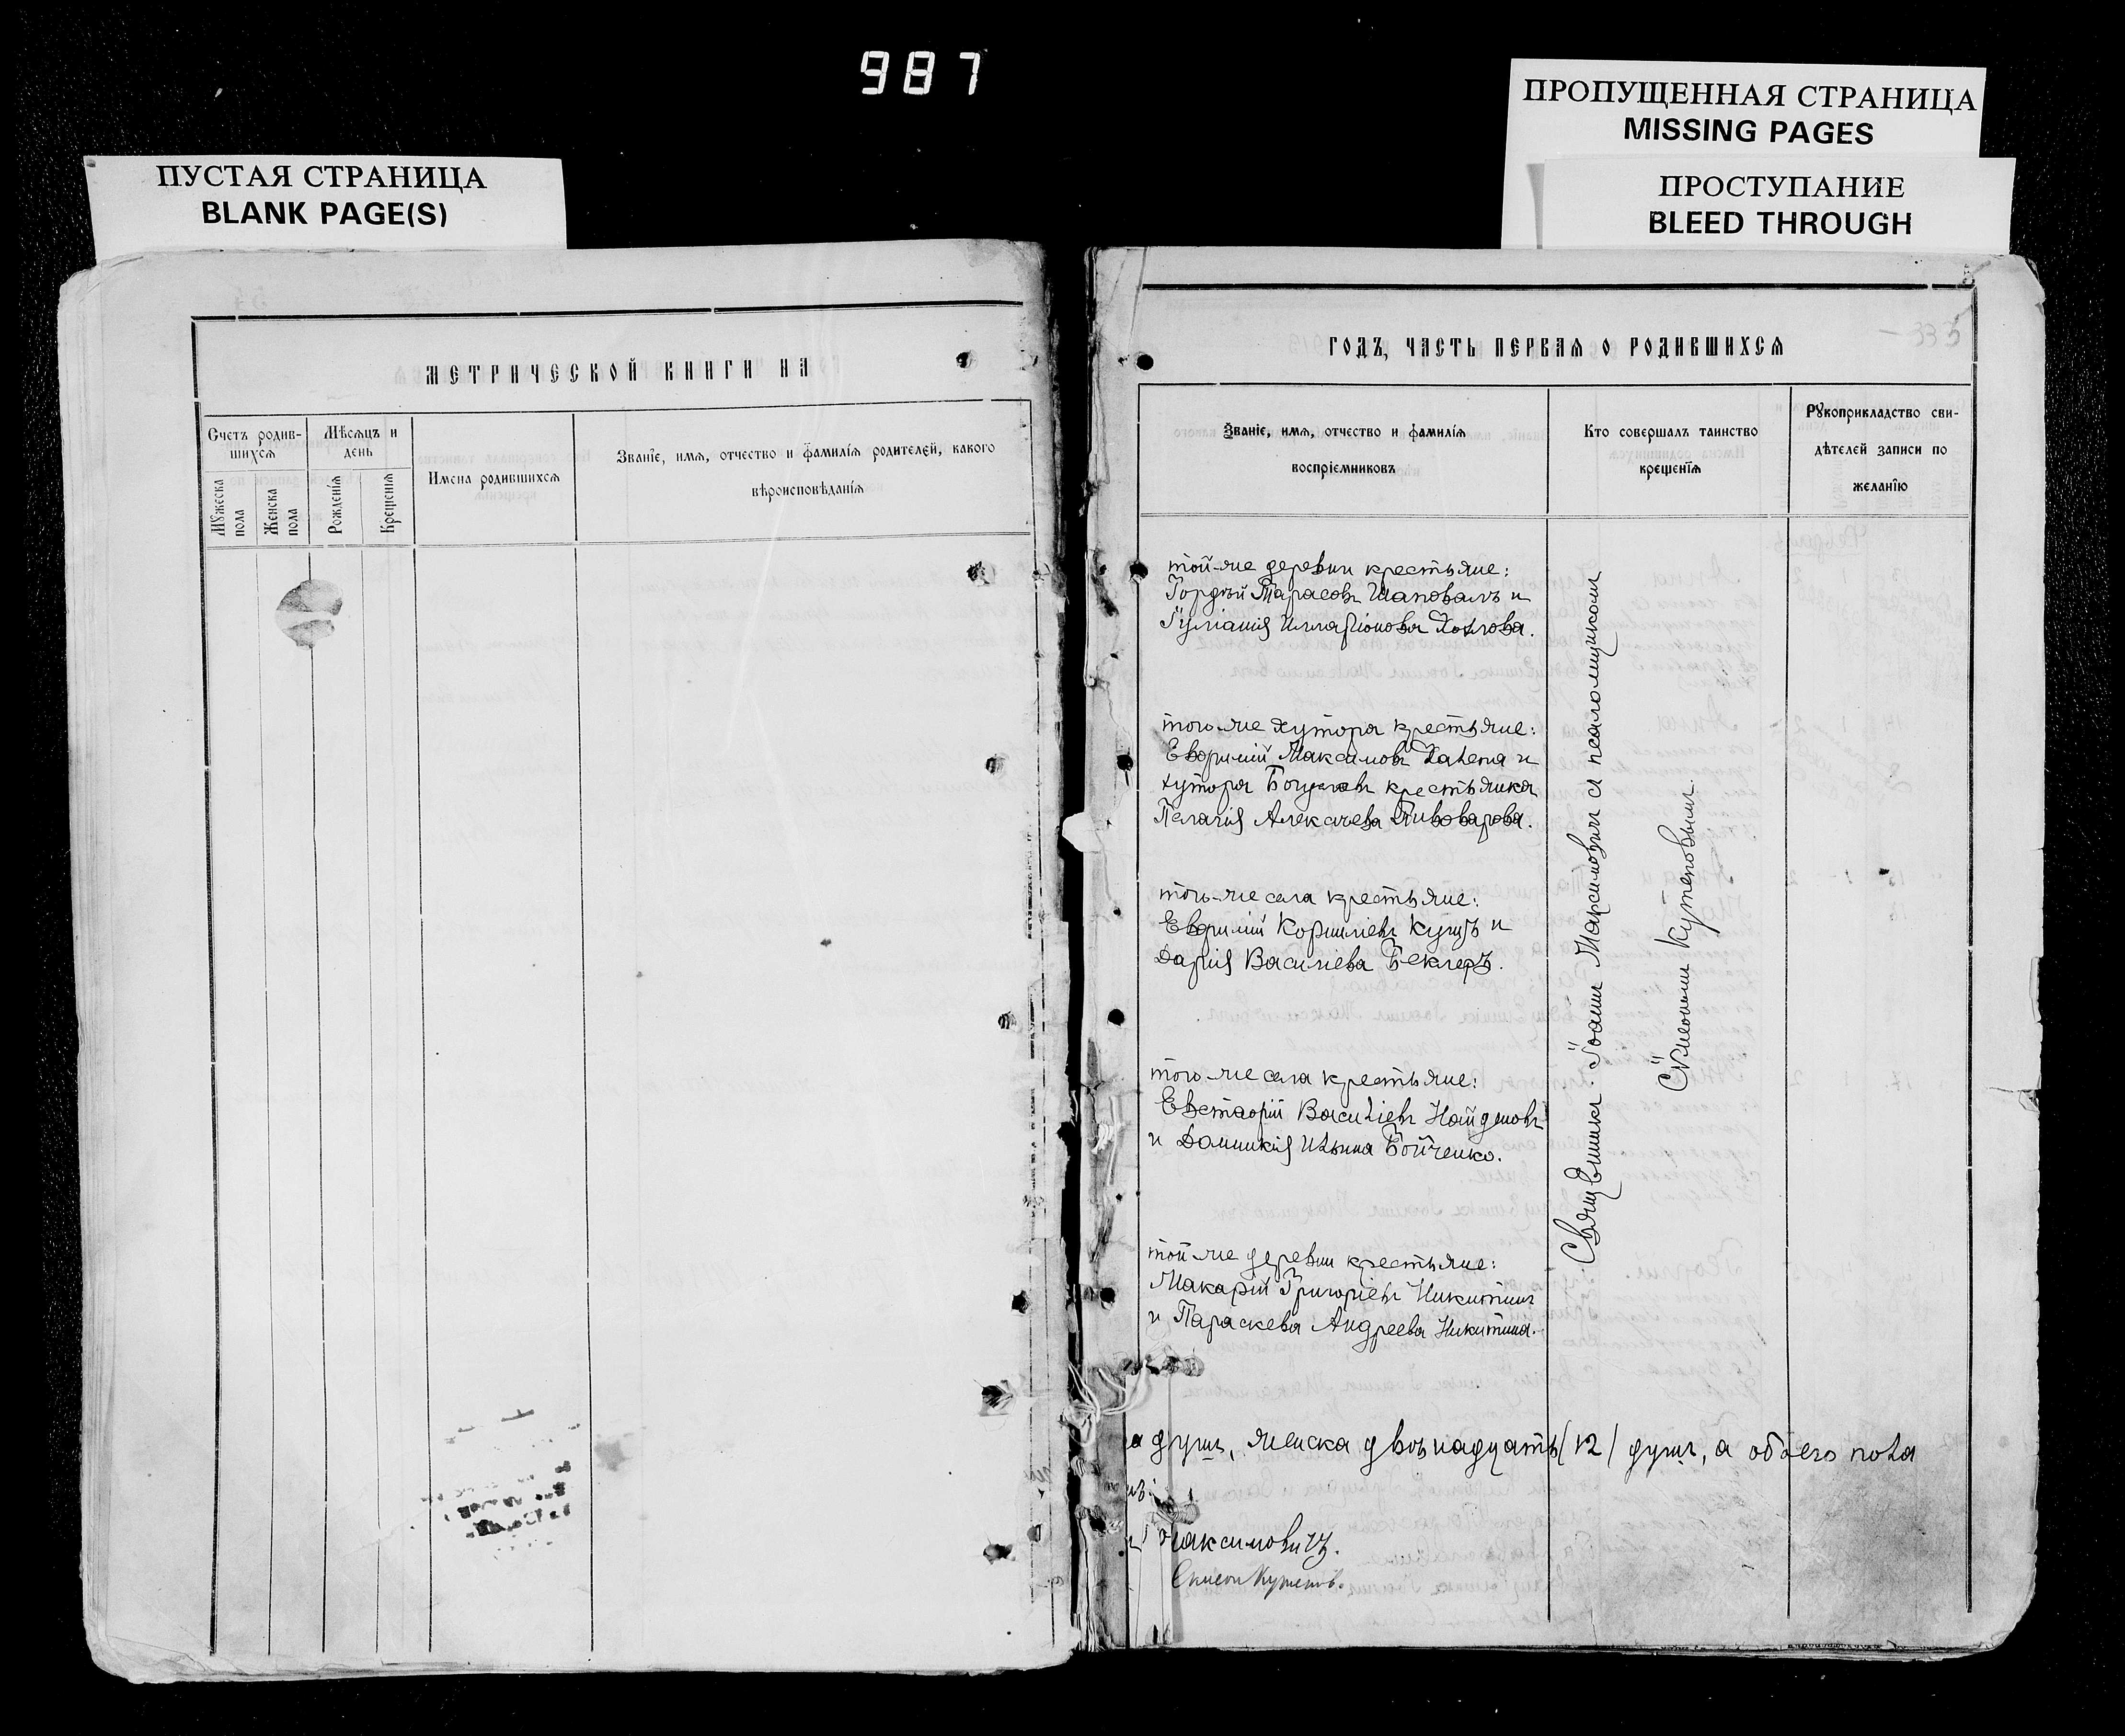 987
ПУСТАЯ СТРАНИЦА
BLANK PAGE(S)
ПРОПУЩЕННАЯ СТРАНИЦА
MISSING PAGES
ПРОСТУПАНИЕ
BLEED THROUGH
МЕТРИЧЕСКОЙ КНИГИ НА
Счетъ родив-
шихся
Мѣсяцъ и
день
Мужеска
пола
Женска
пола
Рожденія
Крещенія
Имена родившихся
Званіе, имя, отчество и фамилія родителей, какого
вѣроисповѣданія
335
ГОДЪ, ЧАСТЬ ПЕРВАЯ О РОДИВШИХСЯ
Званіе, имя, отчество и фамилія
воспріемниковъ
Кто совершалъ таинство
крещенія
Рукоприкладство сви-
дѣтелей записи по
желанію
той-же деревни крестьяне:
Гордѣй Тарасовъ Шаповалъ и
Гуліанія Илларіонова Хохлова.
того-же хутора крестьяне:
Евфимій Максимовъ Халепа и
хутора крестьянка
Пелагія Алексѣева Пивоварова.
того-же села крестьяне:
Евфимій Корниліевъ Куцъ и
Дарія Василіева Беклеръ.
того-же села крестьяне:
Евстафій Василіевъ Найденовъ
и Домникія Ильина Бойченко.
той-же деревни крестьяне:
Макарій Григоріевъ Никитинъ
и Параскева Андреева Никитина.
Священникъ Іоаннъ Максимовичъ съ псаломщикомъ
Сѵмеономъ Кутеповымъ.
а душъ, женска двѣнадцать (12) душъ, а обоего пола
Максимовичъ.
Симеонъ Кутеповъ.